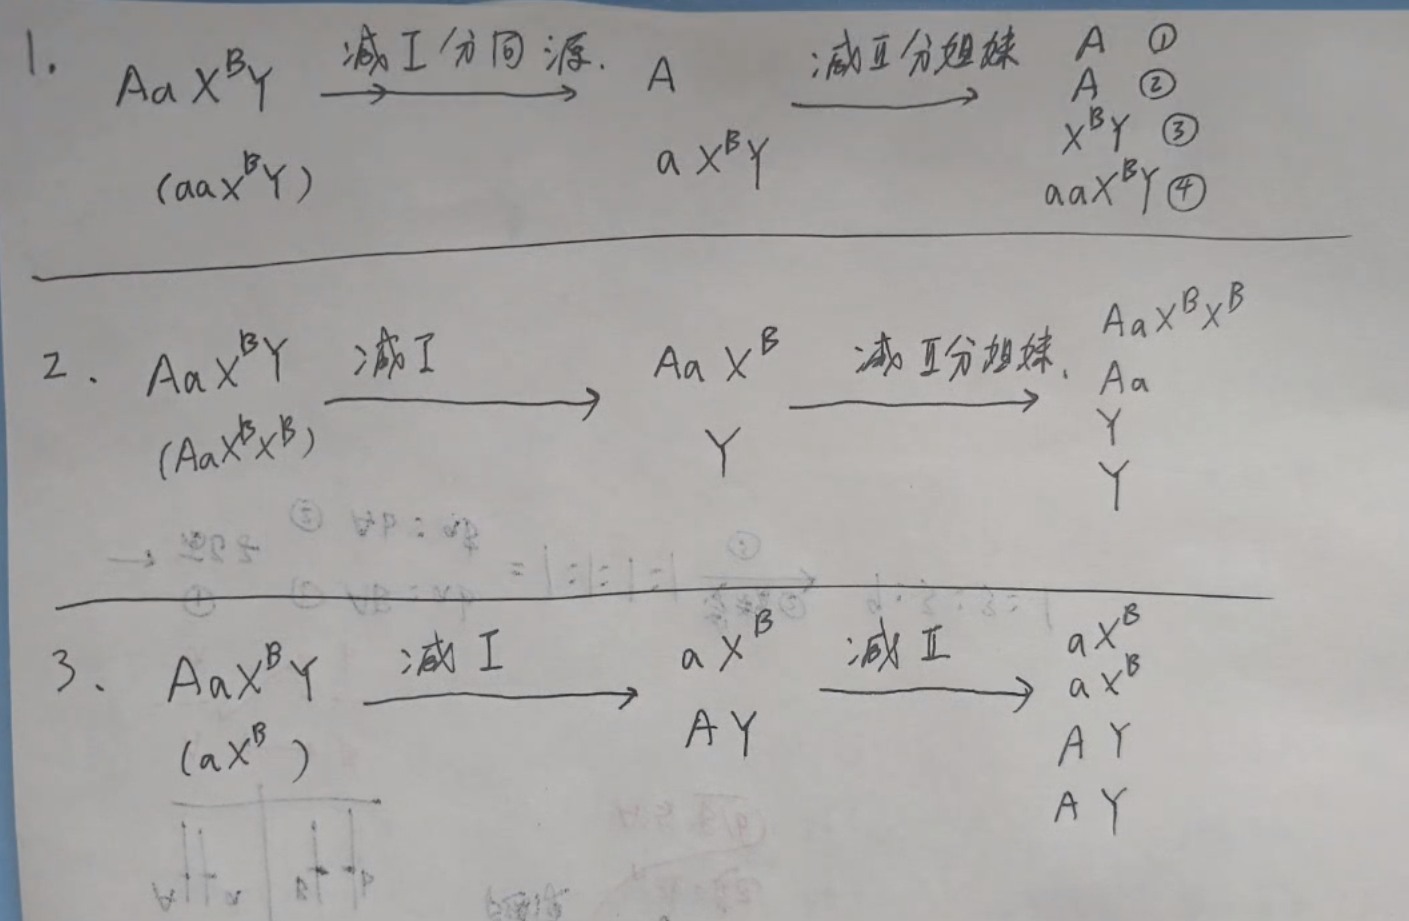 1. AaX^BY 减I分同源. A 减II分姐妹 A ①
A ②
(aaX^BY) aX^BY X^BY ③
aaX^BY ④
2. AaX^BY 减I AaX^B 减II分姐妹. AaX^BX^B
(AaX^BX^B) Y Aa
Y
Y
3. AaX^BY 减I aX^B 减II aX^B
(aX^B) AY aX^B
AY
AY